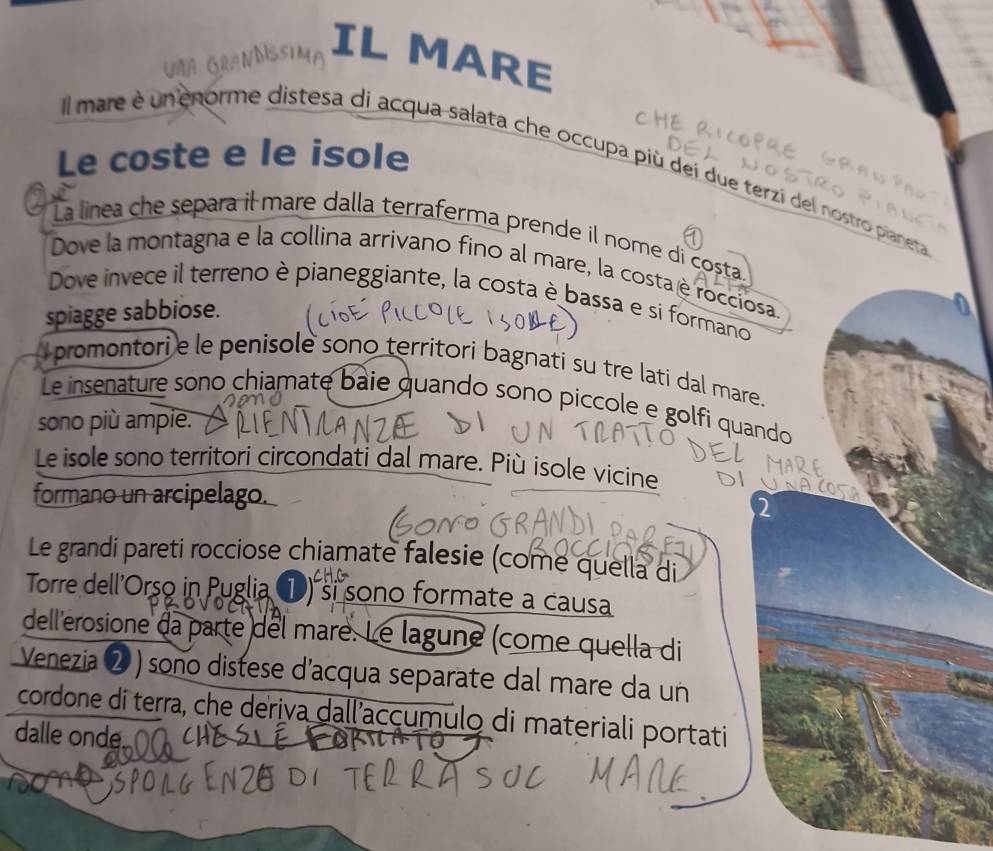 IL MARE
UNA GRANDISSIMA
Il mare è un'enorme distesa di acqua salata che occupa più dei due terzi del nostro pianeta.
CHE RICOPRE GRAN PARTE
DEL NOSTRO PIANETA
Le coste e le isole
2 è
La linea che separa il mare dalla terraferma prende il nome di costa.
1
Dove la montagna e la collina arrivano fino al mare, la costa è rocciosa.
ALTA
Dove invece il terreno è pianeggiante, la costa è bassa e si formano
spiagge sabbiose.
(CIOÈ PICCOLE ISOLE)
I promontori e le penisole sono territori bagnati su tre lati dal mare.
Le insenature sono chiamate baie quando sono piccole e golfi quando
sono
sono più ampie.
RIENTRANZE DI UN TRATTO DEL MARE
DI UNA COSTA
Le isole sono territori circondati dal mare. Più isole vicine
formano un arcipelago.
(SONO GRANDI PARETI
ROCCIOSE)
Le grandi pareti rocciose chiamate falesie (come quella di
Torre dell'Orso in Puglia 1) si sono formate a causa
CHE
PROVOCATA
dell'erosione da parte del mare. Le lagune (come quella di
Venezia 2) sono distese d'acqua separate dal mare da un
cordone di terra, che deriva dall'accumulo di materiali portati
dalle onde.
CHE SI È FORMATO
sono SPORGENZE DI TERRA SUL MARE.
1
2